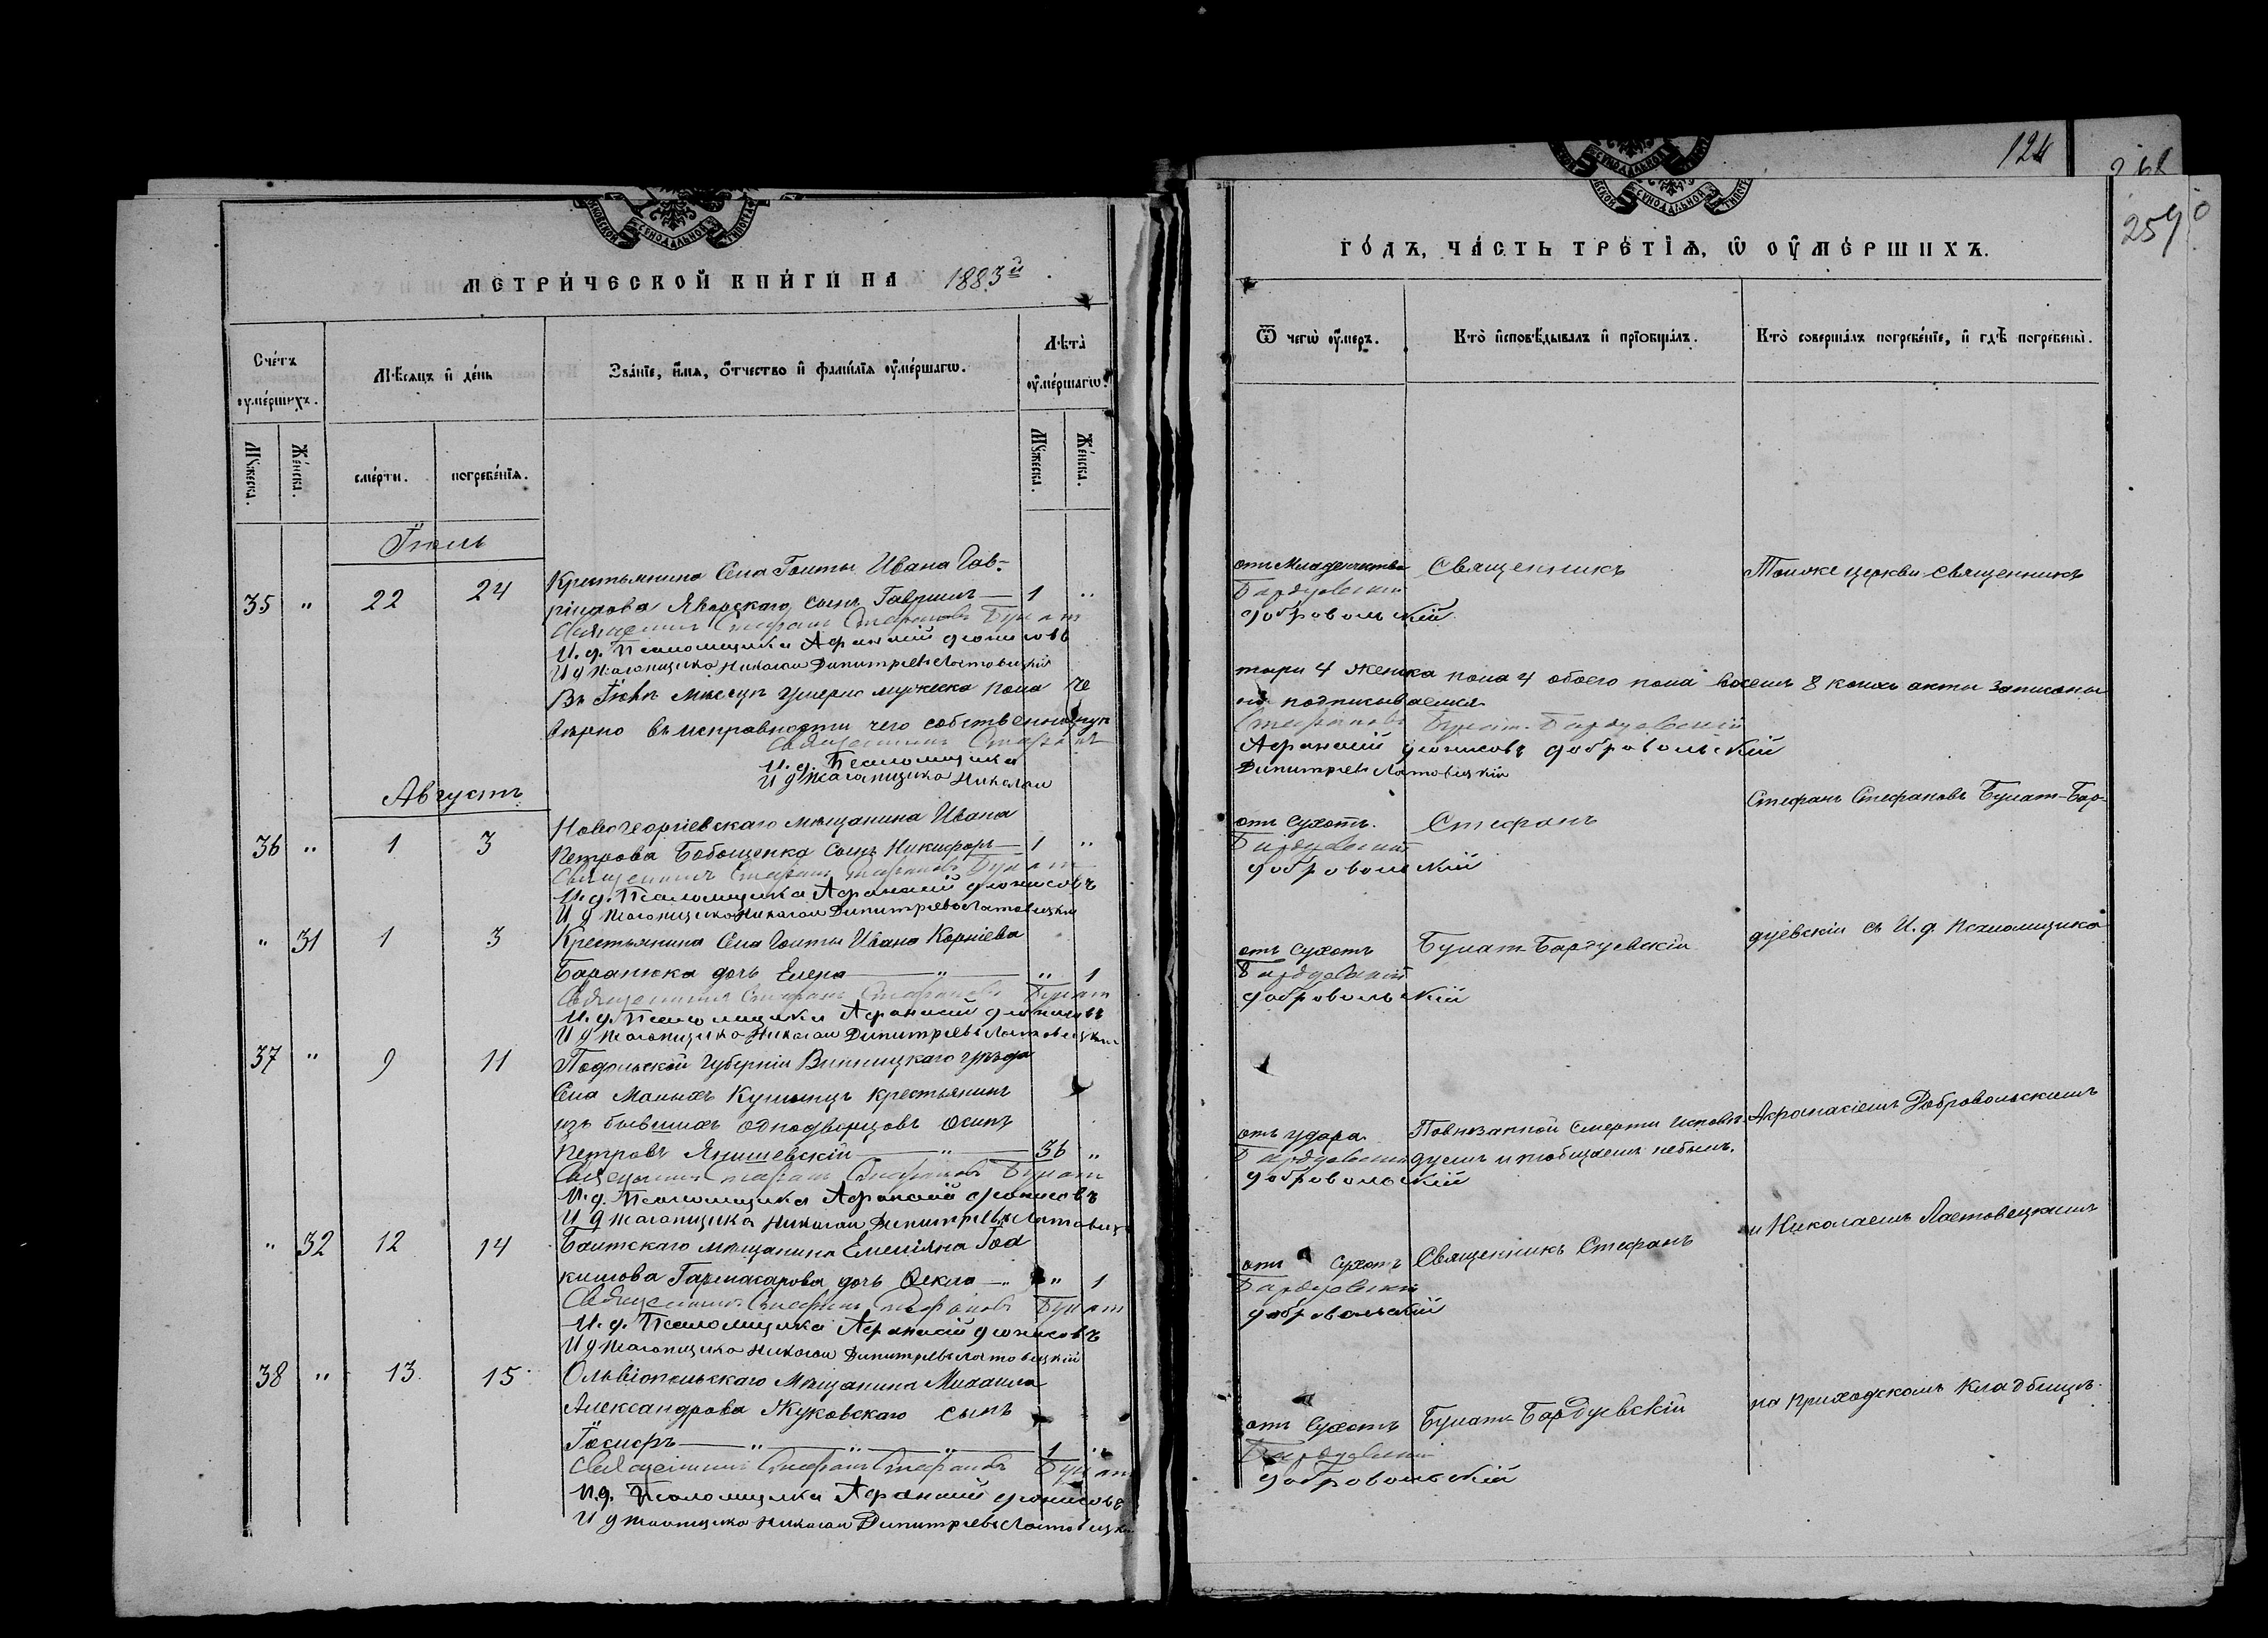 МЕТРИЧЕСКОЙ КНИГИ НА 1883й
Счетъ умершихъ.
Мѣсяцъ и день
Званіе, имя, отчество и фамилія умершаго.
Лѣта умершаго.
Мужеска.
Женска.
смерти.
погребенія.
Мужеска.
Женска.
Іюль
35 " 22 24 Крестьянина Села Гаиты Ивана Гав-
рилова Яворскаго сынъ Гавріилъ — 1 "
Священникъ Стефанъ Стефановъ Булат
И. д. Псаломщика Афанасій Діонисовъ
И д Псаломщика Николай Димитріевъ Ластовецкій
Въ Іюлѣ мѣсяцѣ умерло мужеска пола че
вѣрно въ исправности чего собственноруч
Священникъ Стефанъ
И. д. Псаломщика
И д Псаломщика Николай
Августъ
36 " 1 3 Новогеоргіевскаго мѣщанина Ивана
Петрова Бабощенка сынъ Никифоръ — 1 "
Священникъ Стефанъ Стефановъ Булат
И. д. Псаломщика Афанасій Діонисовъ
И д Псаломщика Николай Димитріевъ Ластовецкій
" 31 1 3 Крестьянина Села Гаиты Ивана Корнієва
Баранюка дочь Елена — " — " 1
Священникъ Стефанъ Стефановъ Булат
И. д. Псаломщика Афанасій Діонисовъ
И д Псаломщика Николай Димитріевъ Ластовецкій
37 " 9 11 Подольской Губерніи Винницкаго уѣзда
Села Малыхъ Кушинцъ крестьянинъ
изъ бывшихъ однодворцовъ Осипъ
Петровъ Янишевскій — " — 36 "
Священникъ Стефанъ Стефановъ Булат
И. д. Псаломщика Афанасій Діонисовъ
И д Псаломщика Николай Димитріевъ Ластовецкій
" 32 12 14 Балтскаго мѣщанина Емеліяна
дочь Ѳекла — " " 1
Священникъ Стефанъ Стефановъ Булат
И. д. Псаломщика Афанасій Діонисовъ
И д Псаломщика Николай Димитріевъ Ластовецкій
38 " 13 15 Ольвіопольскаго Мѣщанина Михаила
Александрова Жуковскаго сынъ
Іосифъ — " — " — " — 1 "
Священникъ Стефанъ Стефановъ Булат
И. д. Псаломщика Афанасій Діонисовъ
И д Псаломщика Николай Димитріевъ Ластовецкій
124
259
ГОДЪ, ЧАСТЬ ТРЕТІЯ, Ѿ ОУМЕРШИХЪ.
Ѿ чего умеръ.
Кто исповѣдывалъ и пріобщалъ.
Кто совершалъ погребеніе, и гдѣ погребены.
отъ Младенчества Священникъ Тойже церкви священникъ
Бардуевскій
Добровольскій
тыри 4 женска пола 4 обоего пола восемь 8 коихъ акты записаны
но подписываемся
Стефановъ Булат-Бардуевскій
Афанасій Діонисовъ Добровольскій
Димитріевъ Ластовецкій
Стефанъ Стефановъ Булат-Бар-
отъ Сухотъ. Стефанъ
Бардуевскій
Добровольскій
отъ Сухотъ Булатъ Бардуевскій дуевскій съ И. д. Псаломщика
Бардуевскій
Добровольскій
отъ удара. Повнезапной смерти исповѣ- Афанасіемъ Добровольскимъ
Бардуевскій дуемъ и пріобщаемъ небылъ.
Добровольскій
и Николаемъ Ластовецкимъ
отъ Сухотъ Священникъ Стефанъ
Бардуевскій
Добровольскій
отъ Сухотъ Булатъ-Бардуевскій на приходскомъ Кладбищѣ.
Бардуевскій
Добровольскій